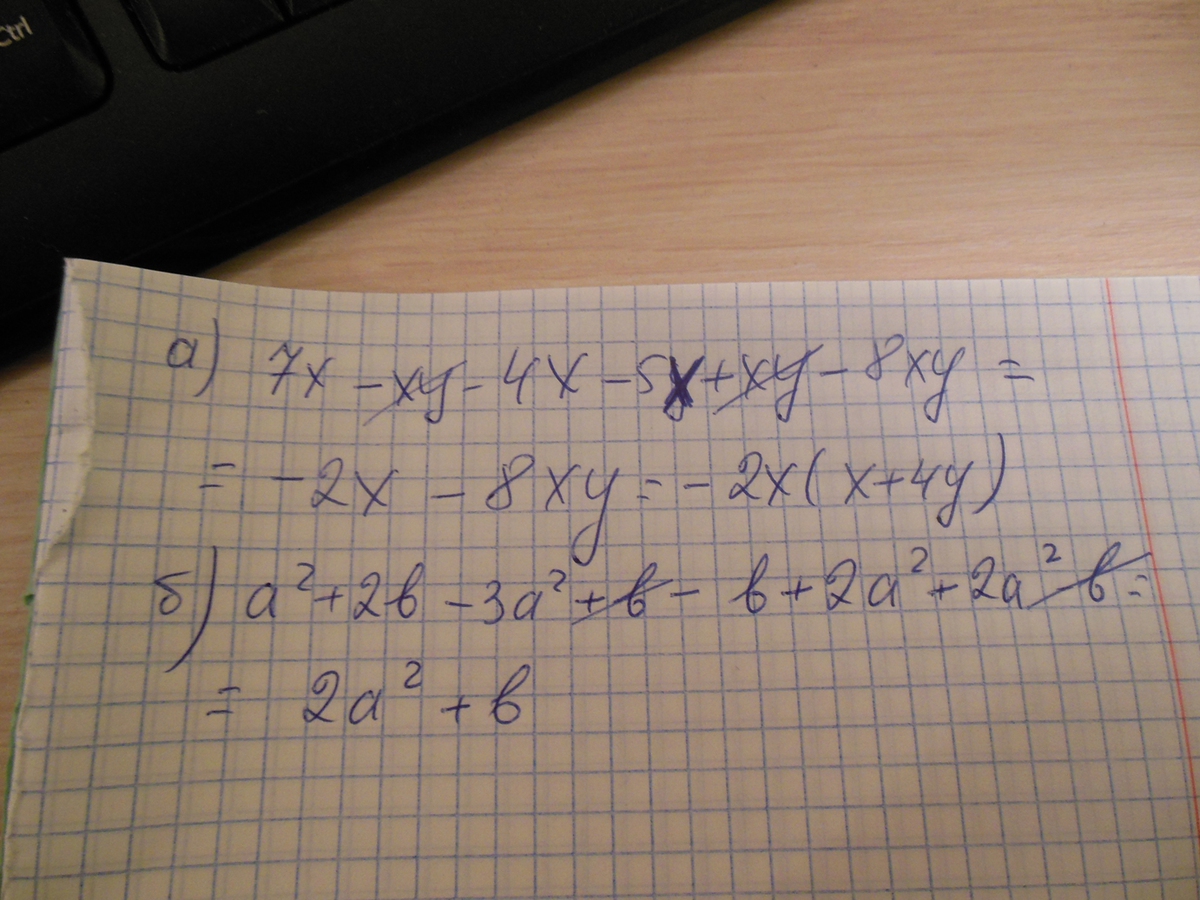 Ctrl
а) 7x - xy - 4x - 5x + xy - 8xy =
= - 2x - 8xy = - 2x(x+4y)
б) a² + 2b - 3a² + b - b + 2a² + 2a² - b =
= 2a² + b